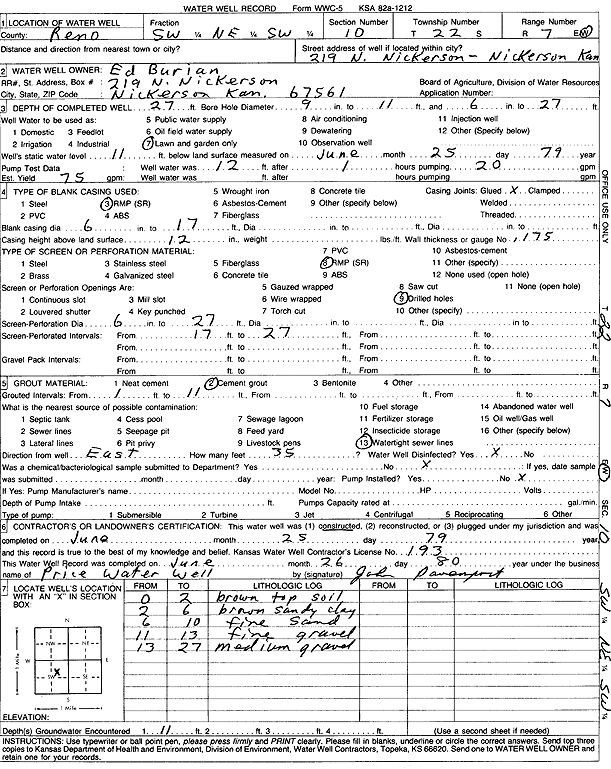 WATER WELL RECORD Form WWC-5 KSA 82a-1212
1 LOCATION OF WATER WELL Fraction Section Number Township Number Range Number
County: Reno SW ¼ NE ¼ SW ¼ 10 T 22 S R 7 E/W
Distance and direction from nearest town or city? Street address of well if located within city?
219 N. Nickerson - Nickerson Kan
2 WATER WELL OWNER: Ed Burian
RR#, St. Address, Box # : 219 N. Nickerson Board of Agriculture, Division of Water Resources
City, State, ZIP Code : Nickerson Kan. 67561 Application Number:
3 DEPTH OF COMPLETED WELL 27 ft. Bore Hole Diameter 9 in. to 11 ft., and 6 in. to 27 ft.
Well Water to be used as: 5 Public water supply 8 Air conditioning 11 Injection well
1 Domestic 3 Feedlot 6 Oil field water supply 9 Dewatering 12 Other (Specify below)
2 Irrigation 4 Industrial 7 Lawn and garden only 10 Observation well
Well's static water level 11 ft. below land surface measured on June month 25 day 79 year
Pump Test Data : Well water was 12 ft. after 1 hours pumping 20 gpm
Est. Yield 75 gpm: Well water was ft. after hours pumping gpm
4 TYPE OF BLANK CASING USED: 5 Wrought iron 8 Concrete tile Casing Joints: Glued X Clamped
1 Steel 3 RMP (SR) 6 Asbestos-Cement 9 Other (specify below) Welded
2 PVC 4 ABS 7 Fiberglass Threaded
Blank casing dia 6 in. to 17 ft., Dia in. to ft., Dia in. to ft.
Casing height above land surface 12 in., weight lbs./ft. Wall thickness or gauge No. .175
TYPE OF SCREEN OR PERFORATION MATERIAL: 7 PVC 10 Asbestos-cement
1 Steel 3 Stainless steel 5 Fiberglass 8 RMP (SR) 11 Other (specify)
2 Brass 4 Galvanized steel 6 Concrete tile 9 ABS 12 None used (open hole)
Screen or Perforation Openings Are: 5 Gauzed wrapped 8 Saw cut 11 None (open hole)
1 Continuous slot 3 Mill slot 6 Wire wrapped 9 Drilled holes
2 Louvered shutter 4 Key punched 7 Torch cut 10 Other (specify)
Screen-Perforation Dia 6 in. to 27 ft., Dia in. to ft., Dia in. to ft.
Screen-Perforated Intervals: From 17 ft. to 27 ft., From ft. to ft.
From ft. to ft., From ft. to ft.
Gravel Pack Intervals: From ft. to ft., From ft. to ft.
From ft. to ft., From ft. to ft.
5 GROUT MATERIAL: 1 Neat cement 2 Cement grout 3 Bentonite 4 Other
Grouted Intervals: From 1 ft. to 11 ft., From ft. to ft., From ft. to ft.
What is the nearest source of possible contamination: 10 Fuel storage 14 Abandoned water well
1 Septic tank 4 Cess pool 7 Sewage lagoon 11 Fertilizer storage 15 Oil well/Gas well
2 Sewer lines 5 Seepage pit 8 Feed yard 12 Insecticide storage 16 Other (specify below)
3 Lateral lines 6 Pit privy 9 Livestock pens 13 Watertight sewer lines
Direction from well East How many feet 35 ? Water Well Disinfected? Yes X No
Was a chemical/bacteriological sample submitted to Department? Yes No X : If yes, date sample
was submitted month day year: Pump Installed? Yes No X
If Yes: Pump Manufacturer's name Model No. HP Volts
Depth of Pump Intake ft. Pumps Capacity rated at gal./min.
Type of pump: 1 Submersible 2 Turbine 3 Jet 4 Centrifugal 5 Reciprocating 6 Other
6 CONTRACTOR'S OR LANDOWNER'S CERTIFICATION: This water well was (1) constructed, (2) reconstructed, or (3) plugged under my jurisdiction and was
completed on June month 25 day 79 year
and this record is true to the best of my knowledge and belief. Kansas Water Well Contractor's License No. 193
This Water Well Record was completed on June month 26 day 80 year under the business
name of Price Water Well by (signature) John Davenport
7 LOCATE WELL'S LOCATION WITH AN "X" IN SECTION BOX:
FROM TO LITHOLOGIC LOG FROM TO LITHOLOGIC LOG
0 2 brown top soil
2 6 brown sandy clay
6 10 fine sand
11 13 fine gravel
13 27 medium gravel
N
NW NE
W E
X
SW SE
S
1 Mile
1 Mile
ELEVATION:
Depth(s) Groundwater Encountered 1. 11 ft. 2. ft. 3. ft. 4. ft. (Use a second sheet if needed)
INSTRUCTIONS: Use typewriter or ball point pen, please press firmly and PRINT clearly. Please fill in blanks, underline or circle the correct answers. Send top three
copies to Kansas Department of Health and Environment, Division of Environment, Water Well Contractors, Topeka, KS 66620. Send one to WATER WELL OWNER and
retain one for your records.
OFFICE USE ONLY
T 22
R 7
E/W
SEC 10
SW ¼ NE ¼ SW ¼